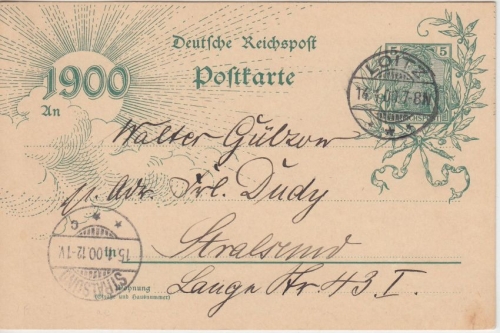 1900
Deutsche Reichspost
Postkarte
An
5 5
LOITZ
7-8N
Walter Gülzow
p. Adr. Frl. Dudy
in
Stralsund
Lange Str. 43 I.
STRALSUND
00.12-1V.
Wohnung
(Straße und Hausnummer)